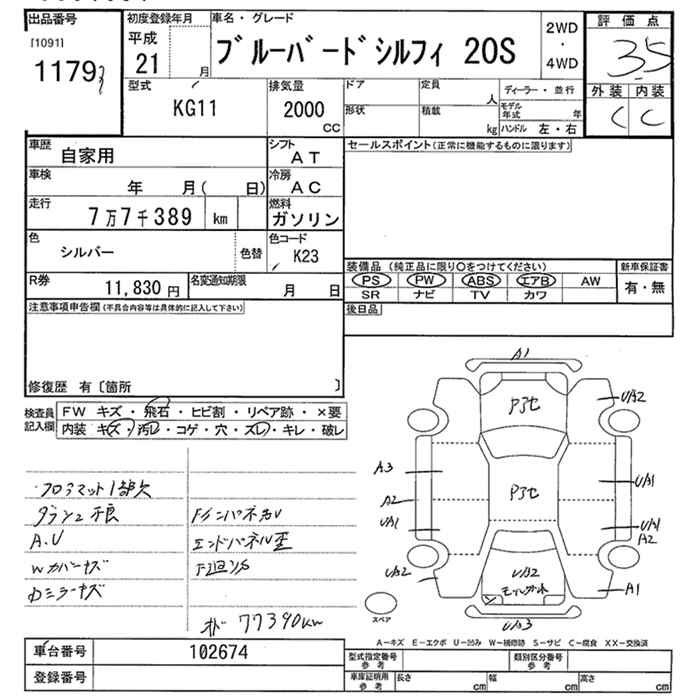 出品番号
[1091]
1179
初度登録年月
平成
21 月
車名・グレード
ブルーバードシルフィ 20S
2WD
・
4WD
評価点
3.5
外装 内装
C C
型式
KG11
排気量
2000
CC
ドア
形状
定員
人
積載
kg
ディーラー・並行
モデル年式 年
ハンドル 左・右
車歴
自家用
シフト
AT
車検
年 月( 日)
冷房
AC
走行
7万7千389 km
燃料
ガソリン
色
シルバー
色替
色コード
K23
R券
11,830 円
名変通知期限
月 日
セールスポイント(正常に機能するものに限ります)
装備品 (純正品に限り○をつけてください)
PS PW ABS エアB AW
SR ナビ TV カワ
新車保証書
有・無
後日品
注意事項申告欄(不具合内容等は具体的に記入して下さい)
修復歴 有〔箇所 〕
検査員記入欄
FW キズ・飛石・ヒビ割・リペア跡・×要
内装 キズ・汚レ・コゲ・穴・スレ・キレ・破レ
フロアマット1部欠
A.U
Wカバーキズ
エンドパネル歪
77390km
A1
UA2
A3
UA1
A2
UA1
UA1
A2
UA2
UA2
A1
UA3
スペア
A-キズ E-エクボ U-凹み W-補修跡 S-サビ C-腐食 XX-交換済
車台番号 102674
登録番号
型式指定番号 参考
類別区分番号 参考
車庫証明用 参考
長さ cm
幅 cm
高さ cm